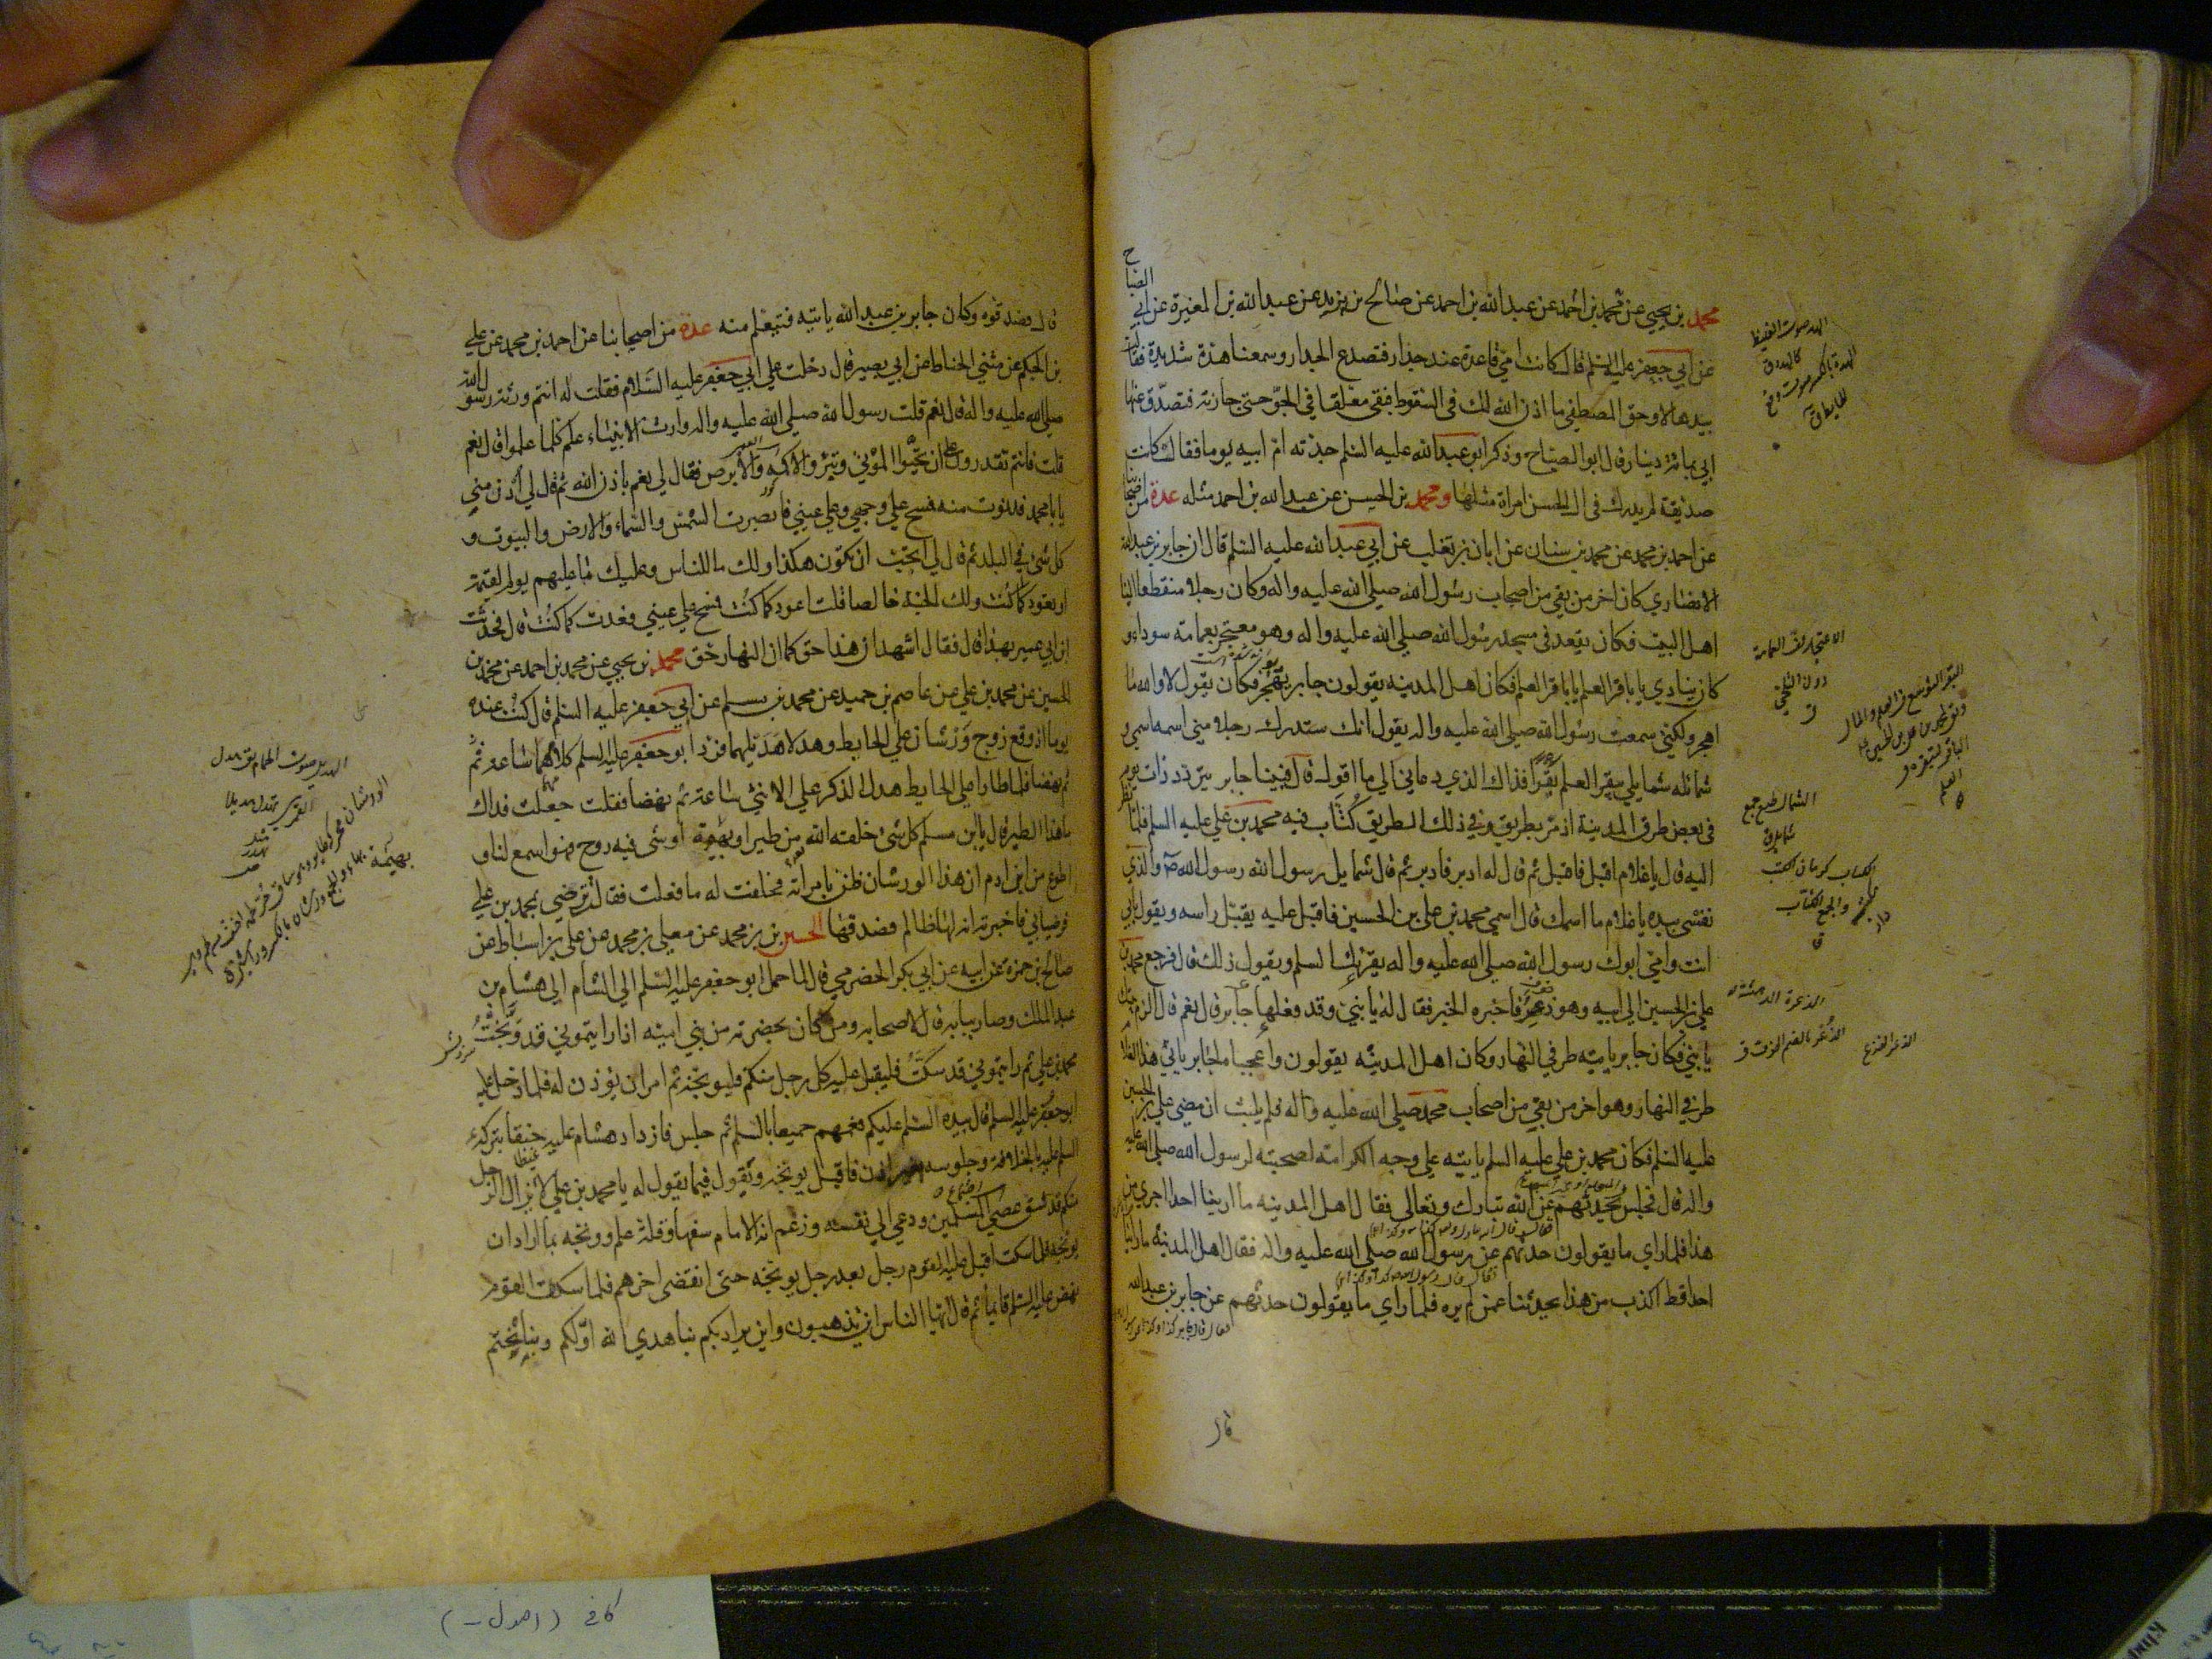 الصباح
محمد بن يحيي عن محمد بن احمد عن عبد الله بن احمد عن صالح بن مزيد عن عبد الله بن المغيرة عن ابي
عن ابي جعفر عليه السلم قال كانت امي قاعدة عند جدار فتصدع الجدار وسمعنا هدة شديدة فقالت
بيدها لا وحق المصطفي ما اذن الله لك في السقوط فبقي معلقا في الجو حتي جازته فتصدق عنها
ابي بمائة دينار قال ابو الصباح وذكر ابو عبد الله عليه السلم جدته ام ابيه يوما فقال كانت
صديقة لم يدرك في ال الحسن امراة مثلها ومحمد بن الحسن عن عبد الله بن احمد مثله عدة من اصحابنا
عن احمد بن محمد عن محمد بن سنان عن ابان بن تغلب عن ابي عبد الله عليه السلم قال ان جابر بن عبد الله
الانصاري كان اخر من بقي من اصحاب رسول الله صلي الله عليه واله وكان رجلا منقطعا الينا
اهل البيت فكان يقعد في مسجد رسول الله صلي الله عليه واله وهو معتجر بعمامة سوداء و
كان ينادي يا باقر العلم يا باقر العلم فكان اهل المدينه يقولون جابر يهجر فكان يقول لا والله ما
اهجر ولكني سمعت رسول الله صلي الله عليه واله يقول انك ستدرك رجلا مني اسمه اسمي و
شمائله شمايلي يبقر العلم بقرا فذاك الذي دعاني الي ما اقول قال فبينا جابر يتردد ذات يوم
في بعض طرق المدينة اذ مر بطريق وفي ذلك الطريق كتاب فيه محمد بن علي عليه السلم فلما نظر
اليه قال يا غلام اقبل فاقبل ثم قال له ادبر فادبر ثم قال شمايل رسول الله رسول الله ص والذي
نفسي بيده يا غلام ما اسمك قال اسمي محمد بن علي بن الحسين فاقبل عليه يقبل راسه ويقول بابي
انت وامي ابوك رسول الله صلي الله عليه واله يقرئك السلم ويقول ذلك قال فرجع محمد بن
علي بن الحسين الي ابيه وهو ذعر فاخبره الخبر فقال له يا بني وقد فعلها جابر قال نعم قال الزم بيتك
يا بني فكان جابر ياتيه طرفي النهار وكان اهل المدينه يقولون واعجبا لجابر ياتي هذا الغلام
طرفي النهار وهو اخر من بقي من اصحاب محمد صلي الله عليه واله فلم يلبث ان مضي علي بن الحسين
عليه السلم فكان محمد بن علي عليه السلم ياتيه علي وجه الكرامة لصحبته لرسول الله صلي الله عليه
واله قال فجلس يحدثهم عن الله تبارك وتعالي فقال اهل المدينه ما راينا احدا اجري من
هذا فلما راي ما يقولون حدثهم عن رسول الله صلي الله عليه واله فقال اهل المدينه ما راينا
احدا قط اكذب من هذا يحدثنا عمن لم يره فلما راي ما يقولون حدثهم عن جابر بن عبد الله
قال
الاعتجار لف العمامة
دون التلحي
ق
العلم
الشمال طبع جمع
شمايل ق
قال فصدقوه وكان جابر بن عبد الله ياتيه فيتعلم منه عدة من اصحابنا عن احمد بن محمد عن علي
بن الحكم عن مثني الحناط عن ابي بصير قال دخلت علي ابي جعفر عليه السلام فقلت له انتم ورثة رسول الله
صلي الله عليه واله قال نعم قلت رسول الله صلي الله عليه واله وارث الانبياء علم كلما علموا قال نعم
قلت فانتم تقدرون علي ان تحيوا الموتي وتبرؤا الاكمه والابرص فقال لي نعم باذن الله ثم قال لي ادن مني
يا با محمد فدنوت منه فمسح علي وجهي وعلي عيني فابصرت الشمس والسماء والارض والبيوت و
كل شئ في البلد ثم قال لي اتحب ان تكون هكذا ولك ما للناس وعليك ما عليهم يوم القيمة
او تعود كما كنت ولك الجنة خالصا قلت اعود كما كنت فمسح علي عيني فعدت كما كنت قال فحدثت
ابن ابي عمير بهذا قال فقال اشهد ان هذا حق كما ان النهار حق محمد بن يحيي عن محمد بن احمد عن محمد بن
الحسين عن محمد بن علي عن عاصم بن حميد عن محمد بن مسلم عن ابي جعفر عليه السلم قال كنت عنده
يوما اذ وقع زوج ورشان علي الحايط وهدلا هديلهما فرد ابو جعفر عليه السلم كلامهما ساعة ثم
نهضا فلما طارا علي الحايط هدل الذكر علي الانثي ساعة ثم نهضا فقلت جعلت فداك
ما هذا الطير قال يا ابن مسلم كل شئ خلقه الله من طير او بهيمة او شئ فيه روح فهو اسمع لنا و
اطوع من ابن ادم ان هذا الورشان ظن بامراته فحلفت له ما فعلت فقالت ترضي بمحمد بن علي
فرضيا بي فاخبرته انه لها ظالم فصدقها الحسين بن محمد عن معلي بن محمد عن علي بن اسباط عن
صالح بن حمزة عن ابيه عن ابي بكر الحضرمي قال لما حمل ابو جعفر عليه السلم الي الشام الي هشام بن
عبد الملك وصار ببابه قال لاصحابه ومن كان بحضرته من بني اميه اذا رايتموني قد وبخت
محمد بن علي ثم رايتموني قد سكت فليقبل عليه كل رجل منكم فليوبخه ثم امر ان يؤذن له فلما دخل عليه
ابو جعفر عليه السلم قال بيده السلم عليكم فعمهم جميعا بالسلم ثم جلس فازداد هشام عليه حنقا بتركه
السلم عليه بالخلافة وجلوسه بغير اذن فاقبل يوبخه ويقول فيما يقول له يا محمد بن علي لا يزال الرجل
منكم قد شق عصي المسلمين ودعي الي نفسه وزعم انه الامام سفها وقلة علم ووبخه بما اراد ان
يوبخه فلما سكت اقبل عليه القوم رجل بعد رجل يوبخه حتي انقضي اخرهم فلما سكت القوم
نهض عليه السلم قايما ثم قال ايها الناس اين تذهبون واين يراد بكم بنا هدي الله اولكم وبنا يختم
كافي (اصول -)